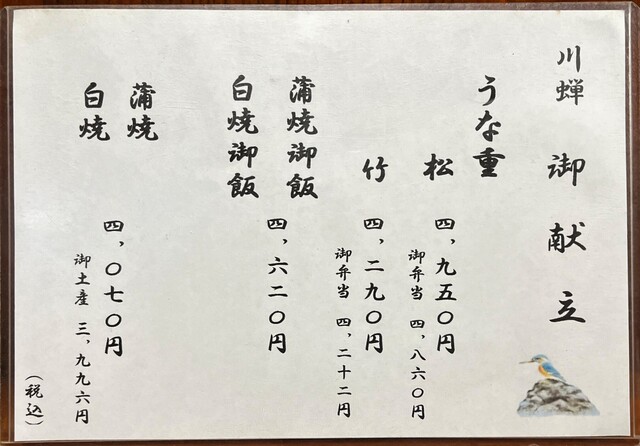 川蝉 御献立
うな重
松 四,九五〇円
御弁当 四,八六〇円
竹 四,二九〇円
御弁当 四,二十二円
蒲焼御飯
白焼御飯
四,六二〇円
蒲焼
白焼
四,〇七〇円
御土産 三,九九六円
(税込)